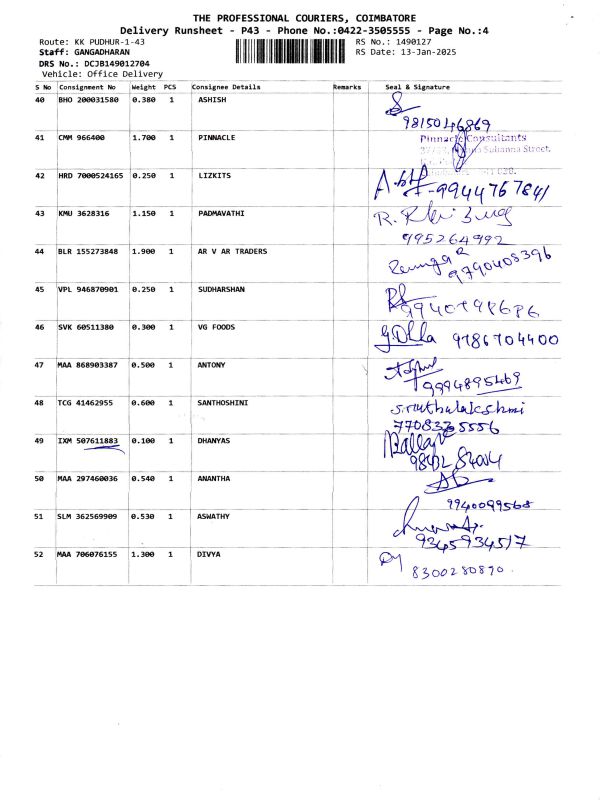 THE PROFESSIONAL COURIERS, COIMBATORE
Delivery Runsheet - P43 - Phone No.:0422-3505555 - Page No.:4
Route: KK PUDHUR-1-43 RS No.: 1490127
Staff: GANGADHARAN RS Date: 13-Jan-2025
DRS No.: DCJB149012704
Vehicle: Office Delivery
S No Consignment No Weight PCS Consignee Details Remarks Seal & Signature
40 BHO 200031580 0.380 1 ASHISH
9815046869
41 CMM 966400 1.700 1 PINNACLE Pinnacle Consultants
Subanna Street,
42 HRD 7000524165 0.250 1 LIZKITS
9944767841
43 KMU 3628316 1.150 1 PADMAVATHI
995264992
44 BLR 155273848 1.900 1 AR V AR TRADERS
9790408396
45 VPL 946870901 0.250 1 SUDHARSHAN
46 SVK 60511380 0.300 1 VG FOODS 9786704400
47 MAA 868903387 0.500 1 ANTONY
9994895469
48 TCG 41462955 0.600 1 SANTHOSHINI S.muthulakshmi
7708325556
49 IXM 507611883 0.100 1 DHANYAS
50 MAA 297460036 0.540 1 ANANTHA
9940099568
51 SLM 362569909 0.530 1 ASWATHY
9345934517
52 MAA 706076155 1.300 1 DIVYA
8300280890.